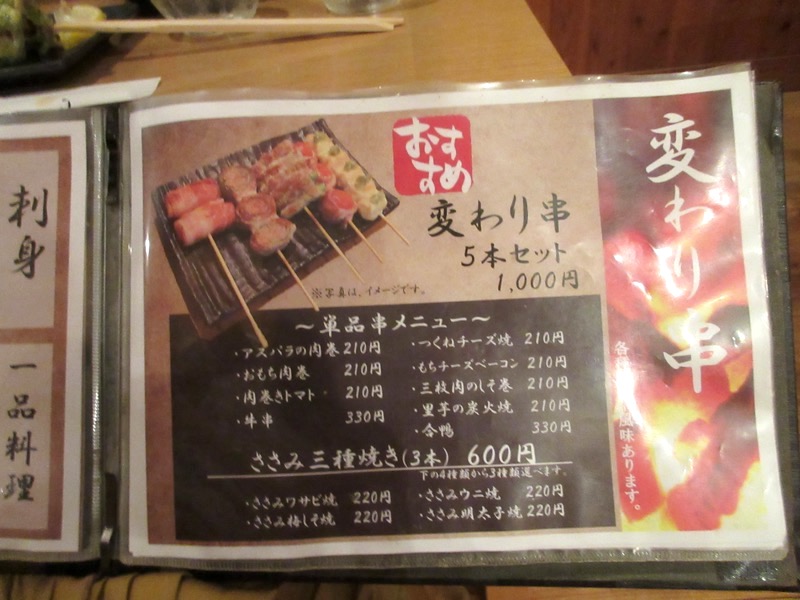 刺身
一品料理
おすすめ
変わり串
5本セット
1,000円
※写真は、イメージです。
～単品串メニュー～
・アスパラの肉巻 210円
・おもち肉巻 210円
・肉巻きトマト 210円
・牛串 330円
・つくねチーズ焼 210円
・もちチーズベーコン 210円
・三枚肉のしそ巻 210円
・里芋の炭火焼 210円
・合鴨 330円
ささみ三種焼き(3本) 600円
下の4種類から3種類選べます。
・ささみワサビ焼 220円
・ささみ梅しそ焼 220円
・ささみウニ焼 220円
・ささみ明太子焼 220円
変わり串
各 風味あります。